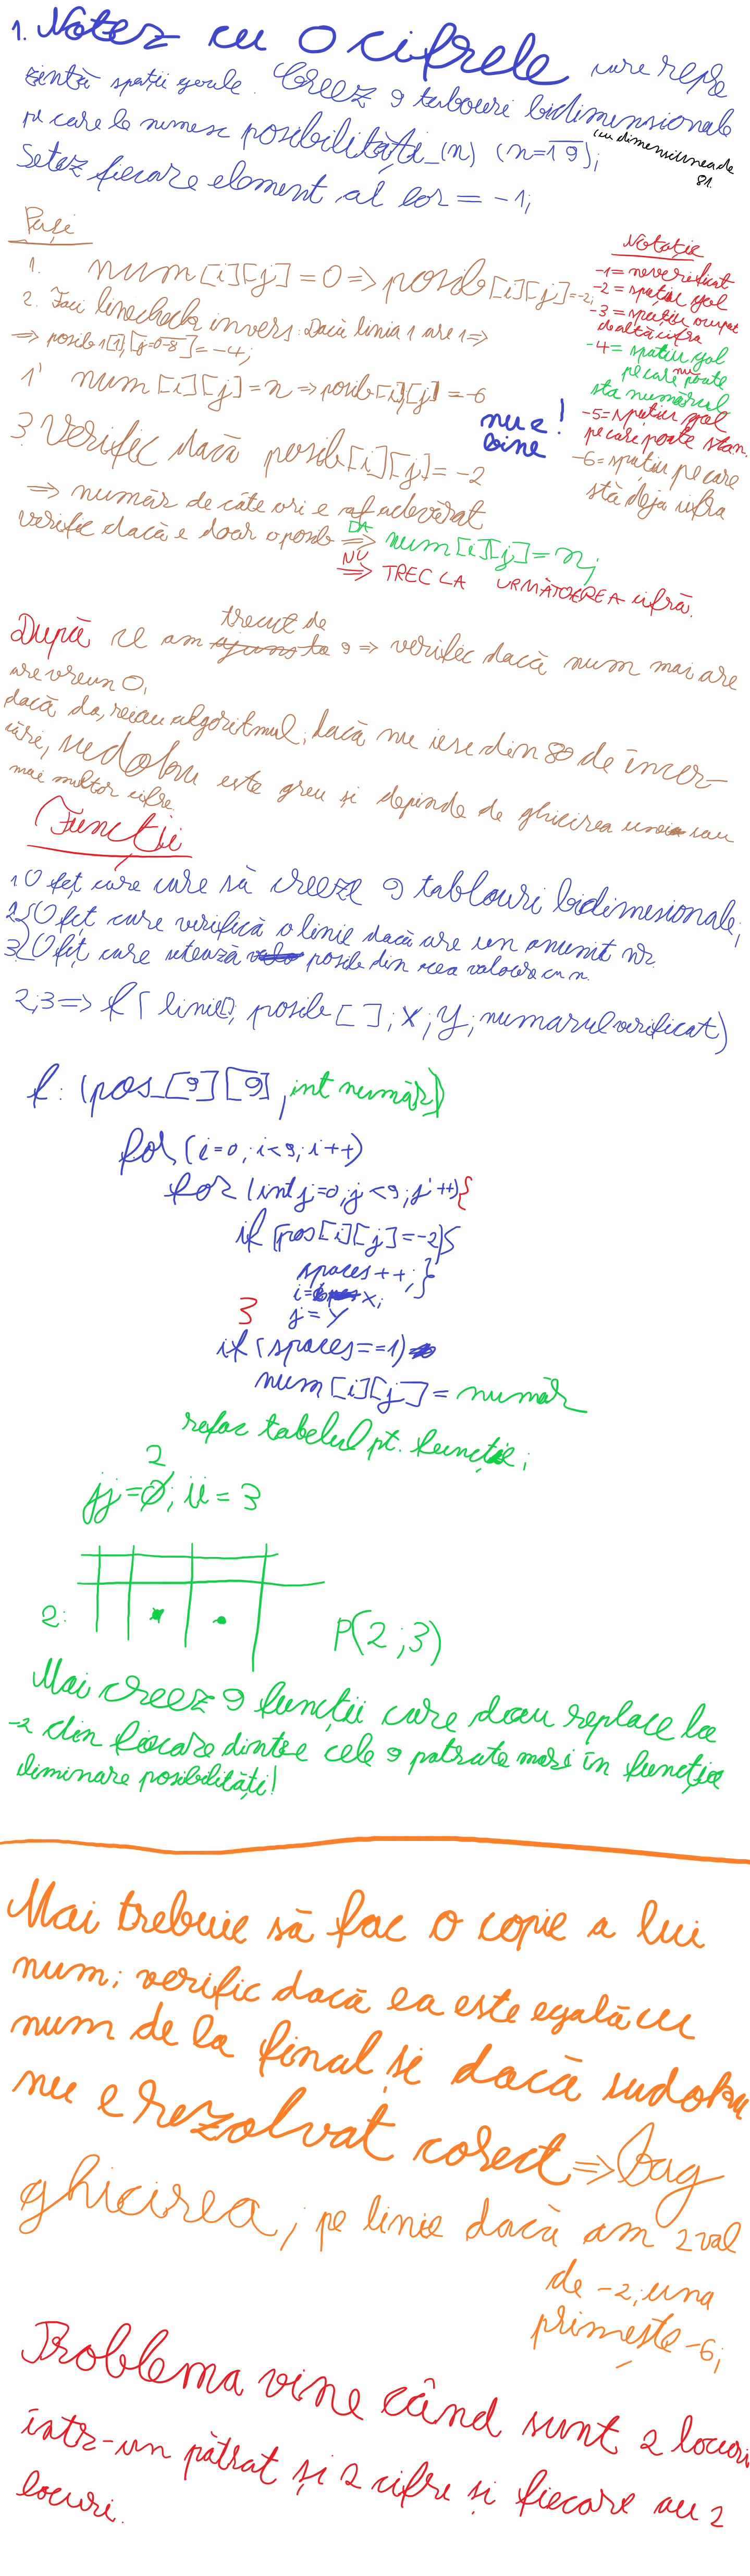 1. Notez cu 0 cifrele care repre
zintă spații goale. Creez 9 tabouri bidimensionale
pe care le numesc posibilități_(n) (n=1 9);
cu dimensiunea de
81.
Setez fiecare element al lor = -1;
Pași
1. num[i][j]=0 => posib[i][j]=-2;
2. Faci linecheck invers: Dacă linia 1 are 1 =>
=> posib1[1][j=0-8]=-4;
1' num[i][j]=n => posib[i][j]=-6
3 Verific dacă posib[i][j]=-2
=> număr de câte ori e adevărat
verific dacă e doar o posib => DA num[i][j]=n;
NU => TREC LA URMĂTOEREA cifră.
Notație
-1= neverificat
-2= spațiu gol
-3= spațiu ocupat
de altă cifra
-4= spațiu gol
pe care nu poate
sta numărul
-5= spațiu gol
pe care poate sta n.
-6= spațiu pe care
stă deja cifra
nu e !
bine
După ce am ajuns la trecut de 9 => verific dacă num mai are
are vreun 0,
dacă da, reiau algoritmul, dacă nu iese din 80 de încer-
cări, sudoku este greu și depinde de ghicirea uneia sau
mai multor cifre.
Funcții
1 O fct care care să creeze 9 tablouri bidimesionale;
2 O fct care verifică o linie dacă are un anumit nr.
3 O fct care setează posib din acea valoare cu n.
2;3 => f( linie[]; posib[]; x; y; numarul verificat)
f: (pos_[9][9], int număr)
for (i=0; i<9; i++)
for (int j=0; j<9; j++){
if (pos[i][j]=-2){
spaces++;}
i=x;
} j=y
if (spaces==1)
num[i][j]=număr
refac tabelul pt. funcție;
2
jj=0; ii=3
2:
P(2;3)
Mai creez 9 funcții care dau replace la
-2 din fiecare dintre cele 9 patrate mari în funcția
eliminare posibilități!
Mai trebuie să fac o copie a lui
num; verific dacă ea este egală cu
num de la final și dacă sudoku
nu e rezolvat corect => bag
ghicirea; pe linie dacă am 2 val
de -2; una
primește -6;
Problema vine când sunt 2 locuri
într-un pătrat și 2 cifre și fiecare au 2
locuri.